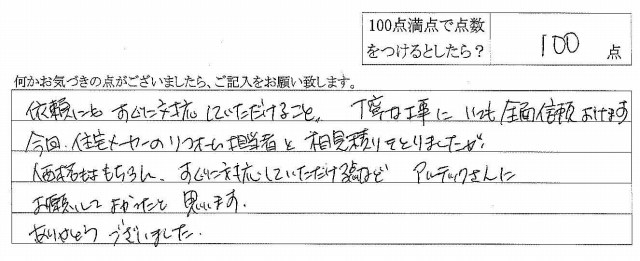 100点満点で点数
をつけるとしたら？
100 点
何かお気づきの点がございましたら、ご記入をお願い致します。
依頼にも すぐに対応していただけること、丁寧な工事に いつも全面信頼おけます
今回、住宅メーカーのリフォーム担当者と 相見積りをとりましたが
価格はもちろん、すぐに対応していただける点など アルティックさんに
お願いしてよかったと思います。
ありがとう ございました。